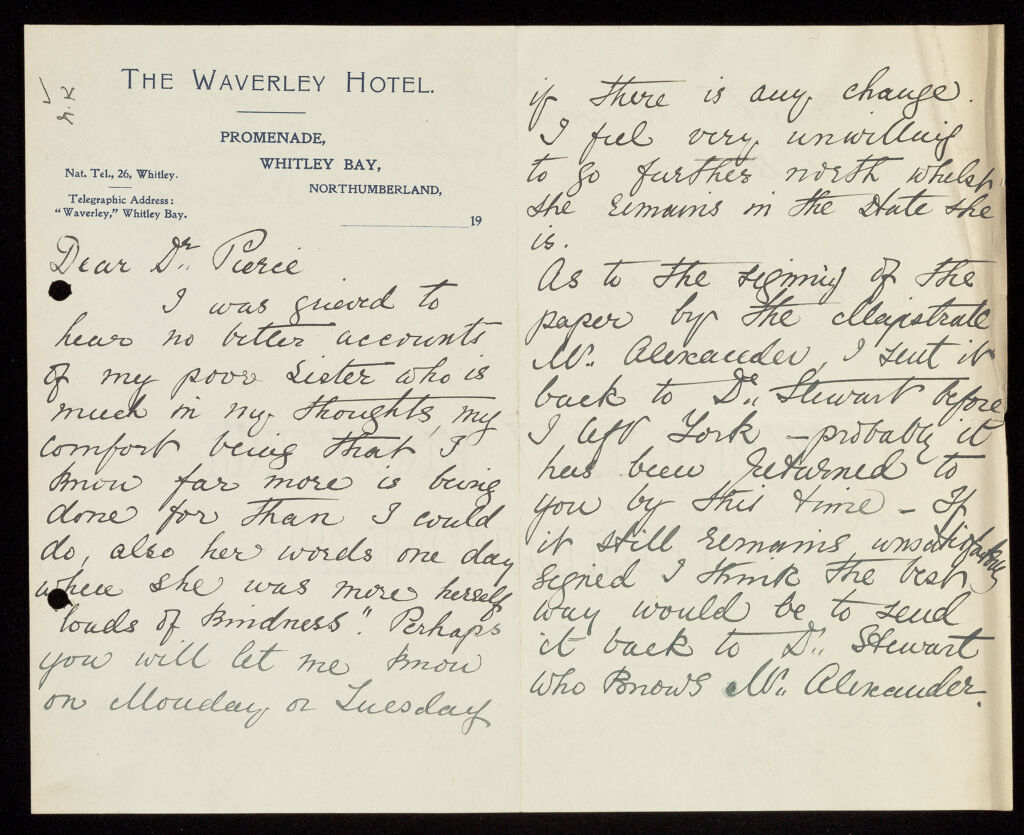 THE WAVERLEY HOTEL.
PROMENADE,
WHITLEY BAY,
NORTHUMBERLAND,
Nat. Tel., 26, Whitley.
Telegraphic Address:
"Waverley," Whitley Bay.
19
Dear Dr. Pierce
I was grieved to
hear no better accounts
of my poor Sister who is
much in my thoughts, my
comfort being that I
know far more is being
done for than I could
do, also her words one day
when she was more herself
"loads of kindness". Perhaps
you will let me know
on Monday or Tuesday
if there is any change.
I feel very unwilling
to go further north whilst
she remains in the State she
is.
As to the signing of the
paper by the Magistrate
Mr. Alexander, I sent it
back to Dr. Stewart before
I left York - probably it
has been returned to
you by this time - If
it still remains unsatisfactorily
signed I think the best
way would be to send
it back to Dr. Stewart
who knows Mr. Alexander.